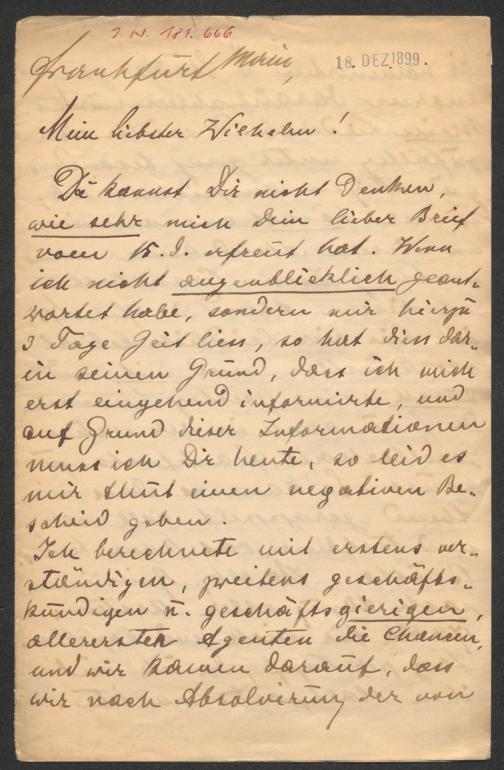 I. N. 181.666
Frankfurt Main,
18. DEZ. 1899.
Mein liebster Wilhelm!
Du kannst Dir nicht denken,
wie sehr mich Dein lieber Brief
vom 15. d. erfreut hat. Wenn
ich nicht augenblicklich geant-
wortet habe, sondern mir hierzu
3 Tage Zeit liess, so hat dies dar-
in seinen Grund, dass ich mich
erst eingehend informirte, und
auf Grund dieser Informationen
muss ich Dir heute, so leid es
mir thut einen negativen Be-
scheid geben.
Ich berechnete mit erstens ver-
ständigen, zweitens geschäfts-
kundigen u. geschäftsgierigen,
allerersten Agenten die Chancen,
und wir kamen darauf, dass
wir nach Absolvirung der von